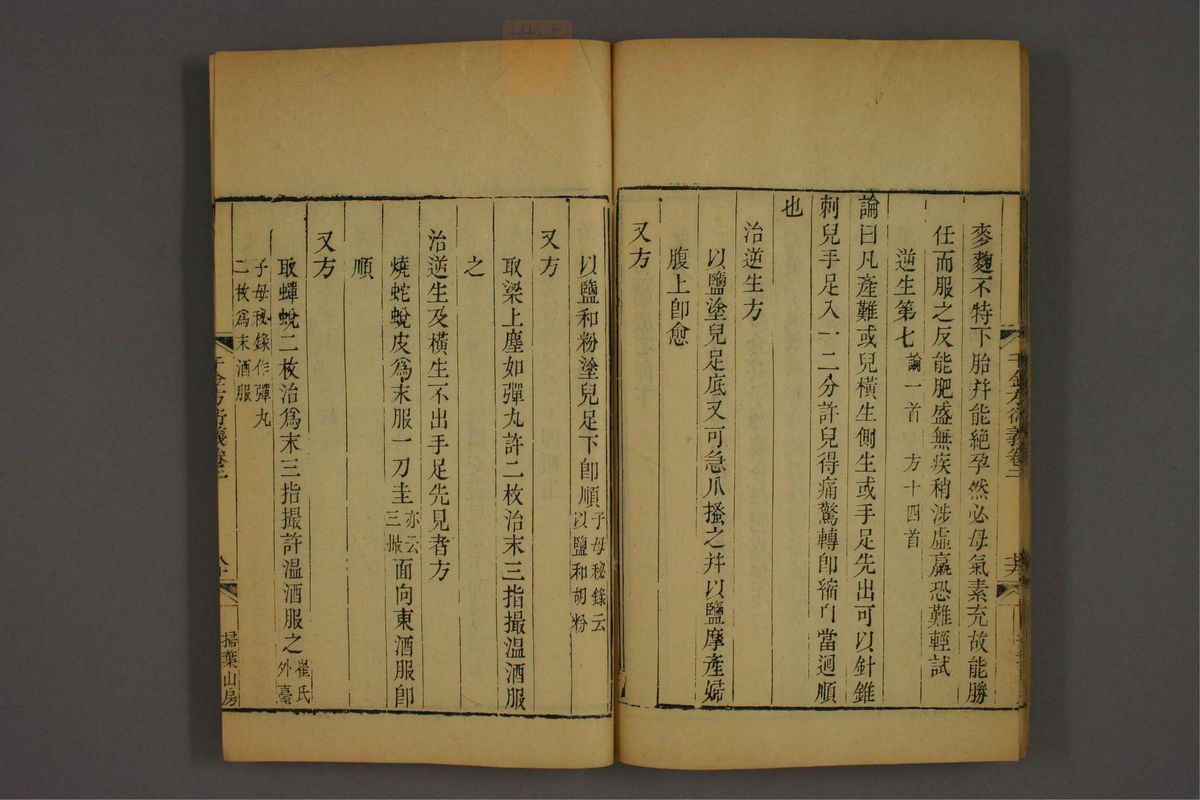 麥麴不特下胎幷能絶孕然必母氣素充故能勝
任而服之反能肥盛無疾稍涉虛羸恐難輕試
逆生第七 論一首 方十四首
論曰凡產難或兒橫生側生或手足先出可以針錐
刺兒手足入一二分許兒得痛驚轉卽縮自當迴順
也
治逆生方
以鹽塗兒足底又可急爪搔之幷以鹽摩產婦
腹上卽愈
又方
以鹽和粉塗兒足下卽順 子母秘錄云
以鹽和胡粉
又方
取梁上塵如彈丸許二枚治末三指撮溫酒服
之
治逆生及橫生不出手足先見者方
燒蛇蛻皮爲末服一刀圭 亦云
三撮 面向東酒服卽
順
又方
取蟬蛻二枚治爲末三指撮許溫酒服之 崔氏
外臺
子母秘錄作彈丸
二枚爲末酒服
千金方衍義卷二
掃葉山房